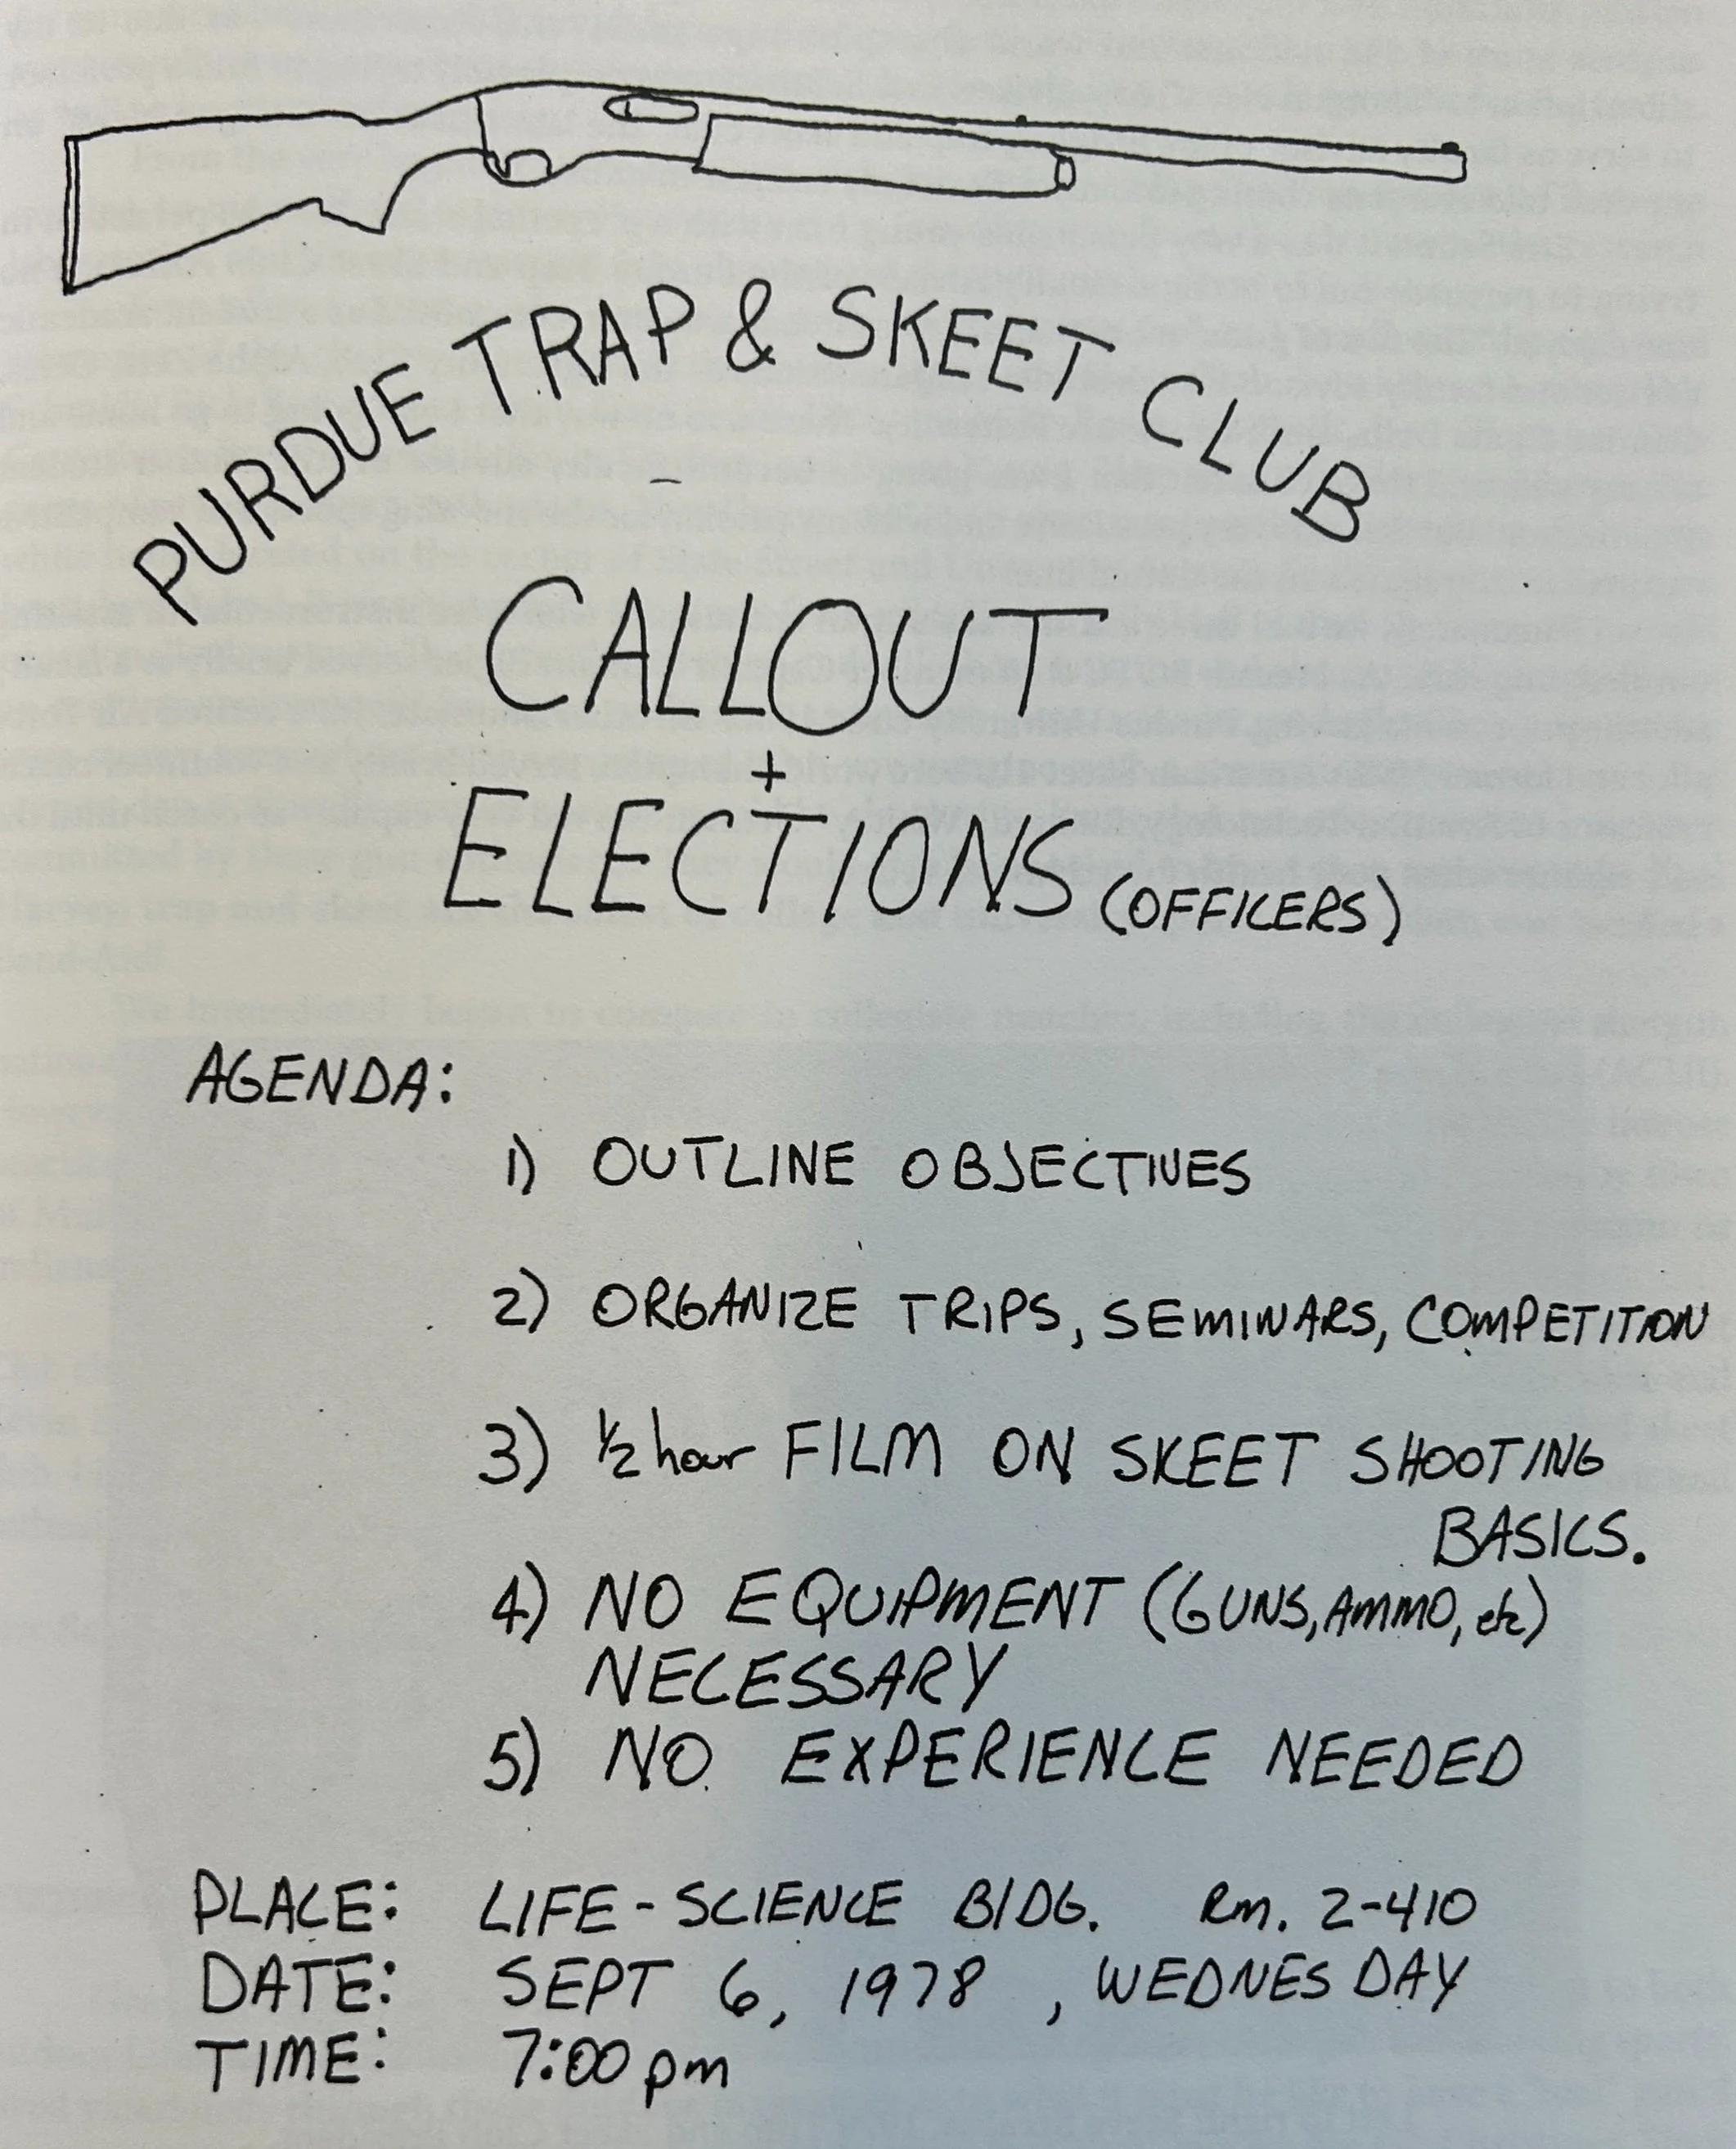 PURDUE TRAP & SKEET CLUB
CALLOUT
+
ELECTIONS (OFFICERS)
AGENDA:
1) OUTLINE OBJECTIVES
2) ORGANIZE TRIPS, SEMINARS, COMPETITION
3) ½ hour FILM ON SKEET SHOOTING
BASICS.
4) NO EQUIPMENT (GUNS, AMMO, etc)
NECESSARY
5) NO EXPERIENCE NEEDED
PLACE: LIFE-SCIENCE BlDG. Rm. 2-410
DATE: SEPT 6, 1978, WEDNESDAY
TIME: 7:00 pm